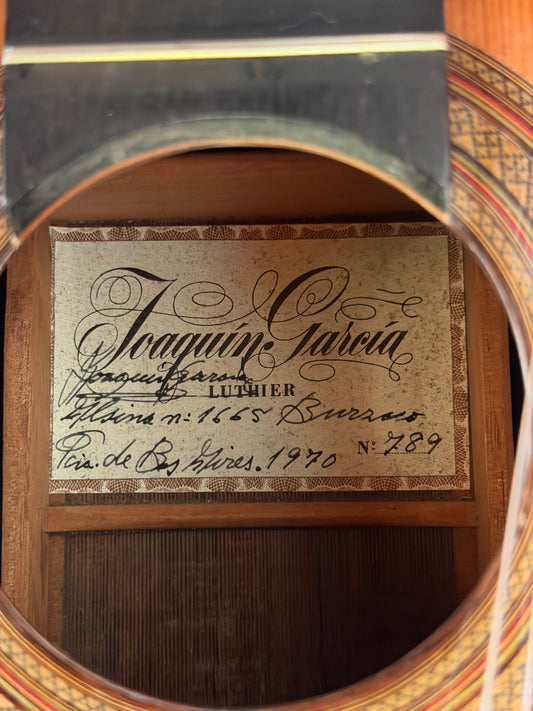 Joaquín García
Joaquín García
LUTHIER
Alsina nº 1665 Burzaco
Pcia. de Bs Aires. 1970 Nº 789